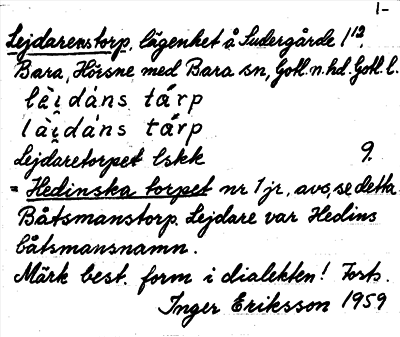 1-
Lejdarenstorp, lägenhet å Sudergårde 1¹²,
Bara, Hörsne med Bara sn, Gotl. n. hd. Gotl. l.
làidáns tárp
làidáns tárp
Lejdaretorpet lskk 9.
= Hedinska torpet nr 1 jr, avs, se detta.
Båtsmanstorp. Lejdare var Hedins
båtsmansnamn.
Märk best. form i dialekten! Forts.
Inger Eriksson 1959